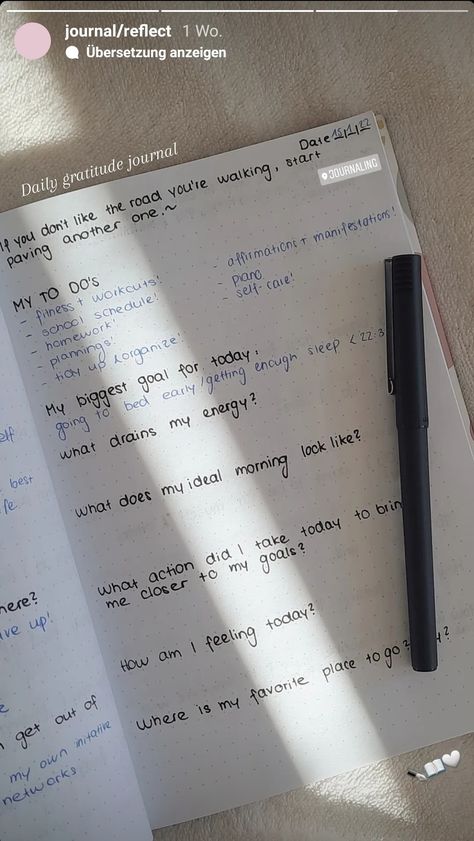 journal/reflect 1 Wo.
Übersetzung anzeigen
Daily gratitude journal
Date 15|1|22
JOURNALING
If you don't like the road you're walking, start
paving another one.~
MY TO DO'S
- fitness + workouts!
- school schedule!
- homework!
- plannings!
- tidy up & organize!
- affirmations + manifestations!
- piano
- self-care!
My biggest goal for today:
going to bed early/getting enough sleep < 22:3
what drains my energy?
what does my ideal morning look like?
what action did I take today to brin
me closer to my goals?
How am I feeling today?
Where is my favorite place to go? y?
elf
best
fe
here?
ive up!
e
n get out of
my own initative
networks